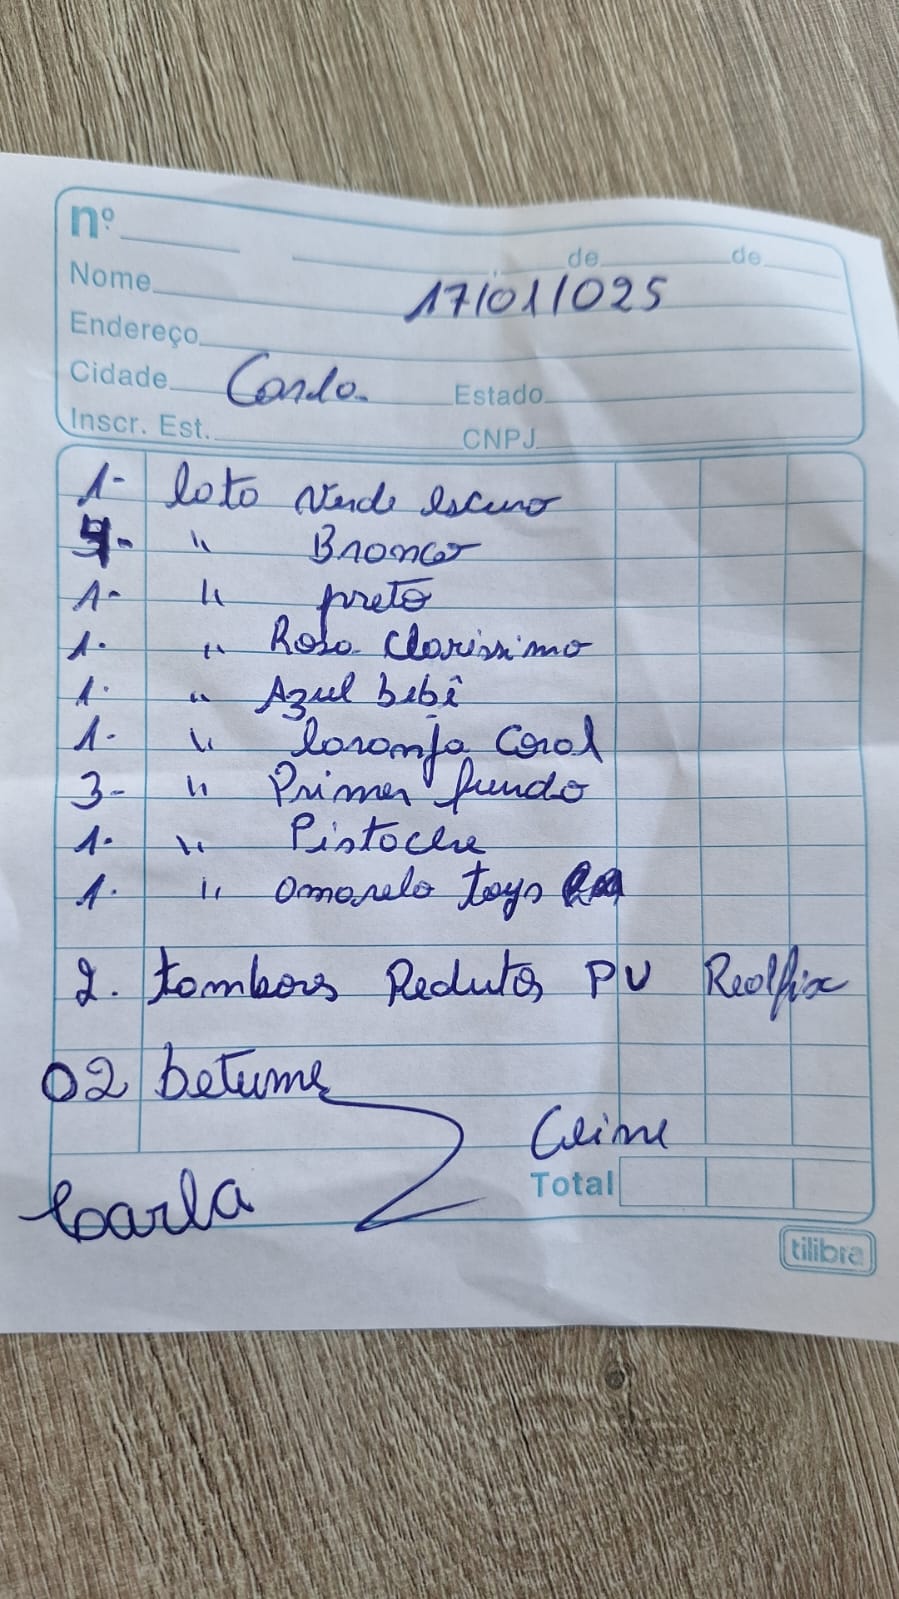 nº de de
Nome 17/01/1025
Endereço
Cidade Carla Estado
Inscr. Est. CNPJ
1- lata verde escuro
" Branco
1- " preto
1- " Rosa Claríssimo
1- " Azul bebê
1- " laranja Coral
3- " Primer fundo
1- " Pistache
1- " amarelo toys
2. tambores Redutor PU Realfix
02 betume
Celine
Carla Total
tilibra